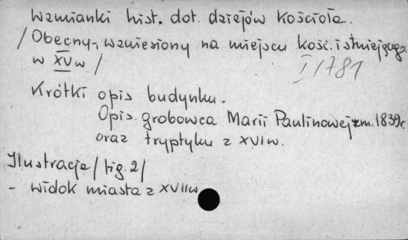 Wzmianki hist. dot. dziejów Kościoła.
/Obecny, wzniesiony na miejscu kość. istniejącego
w XVw/
I/1781
Krótki opis budynku.
Opis. grobowca Marii Paulinowej zm. 1839r.
oraz tryptyku z XVIw.
Ilustracje /fig. 2/
- widok miasta z XVIIw